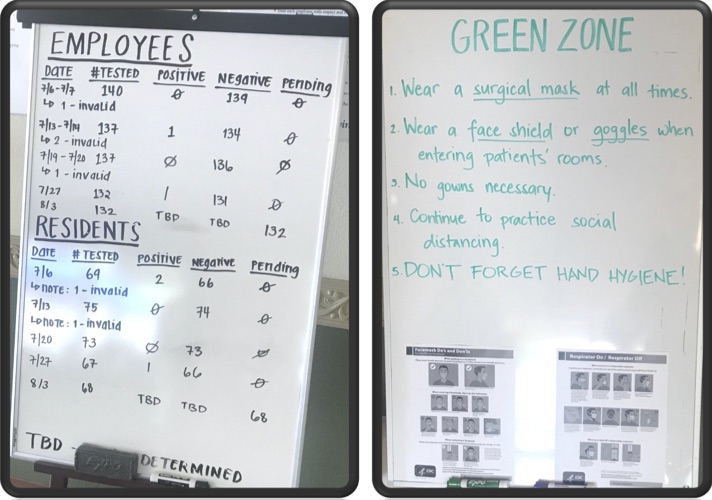 EMPLOYEES
DATE #TESTED POSITIVE NEGATIVE Pending
7/6-7/7 140 0 139 0
↳ 1 - invalid
7/13-7/14 137 1 134 0
↳ 2 - invalid
7/19-7/20 137 0 136 0
↳ 1 - invalid
7/27 132 1 131 0
8/3 132 TBD TBD 132
RESIDENTS
DATE # TESTED Positive Negative Pending
7/6 69 2 66 0
↳ NOTE: 1 - invalid
7/13 75 0 74 0
↳ NOTE: 1 - invalid
7/20 73 0 73 0
7/27 67 1 66 0
8/3 68 TBD TBD 68
TBD - DETERMINED
Expo
GREEN ZONE
1. Wear a surgical mask at all times.
2. Wear a face shield or goggles when
entering patients' rooms.
3. No gowns necessary.
4. Continue to practice social
distancing.
5. DON'T FORGET HAND HYGIENE!
Facemask Do's and Don'ts
Respirator On / Respirator Off
CDC
CDC